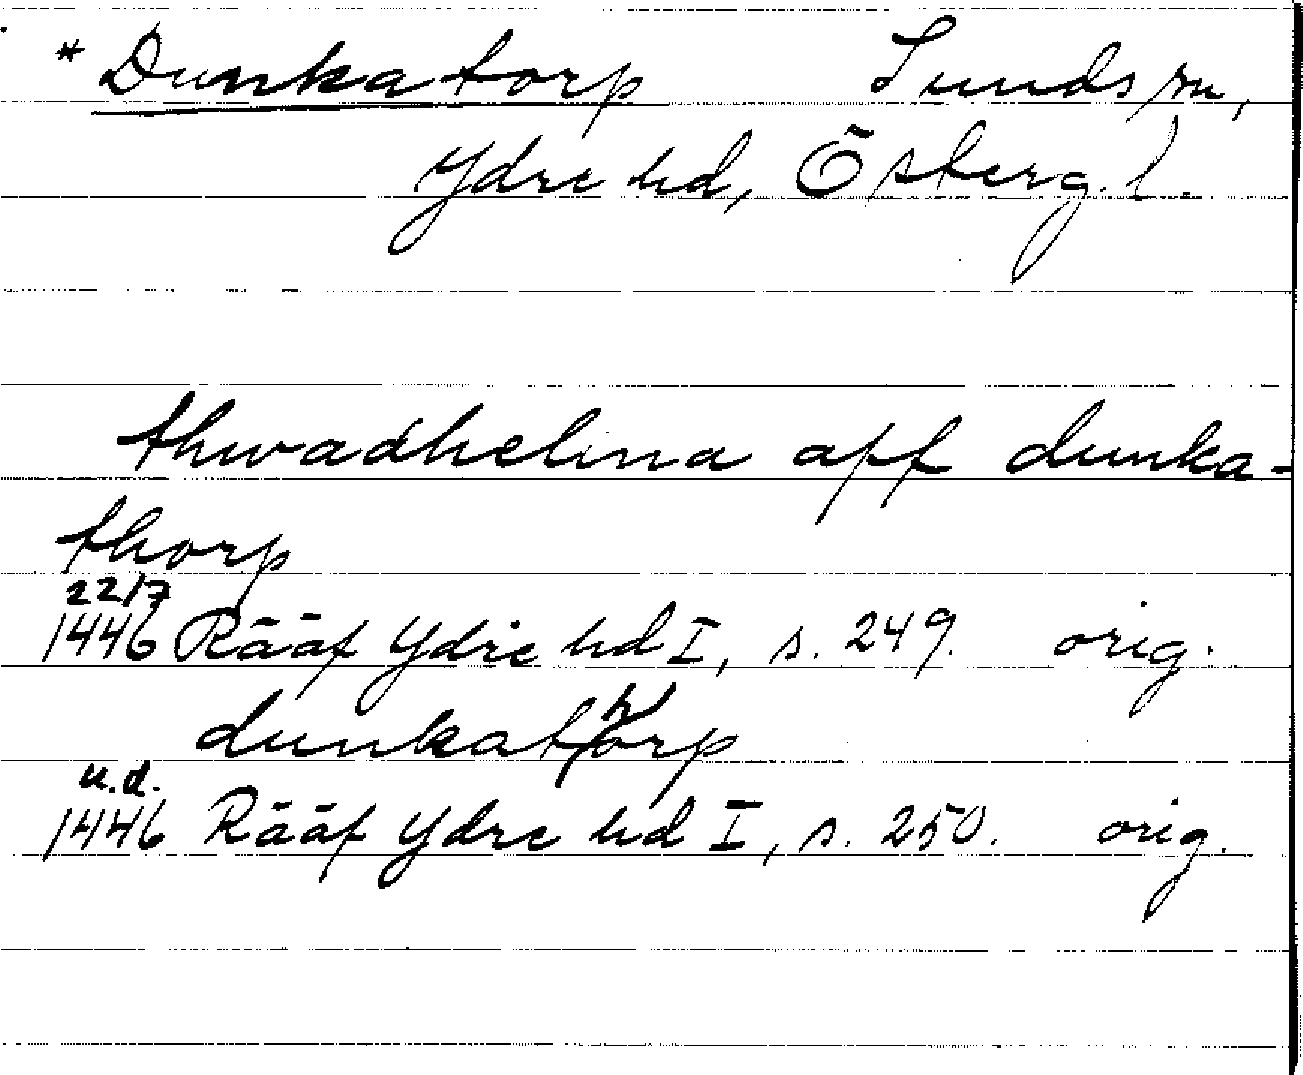 * Dunkatorp Sunds sn,
Ydre hd, Österg. l.
thwadhelina aff dunka-
thorp
22/7
1446 Rääf Ydre hd I, s. 249. orig.
dunkathorp
u.d.
1446 Rääf Ydre hd I, s. 250. orig.